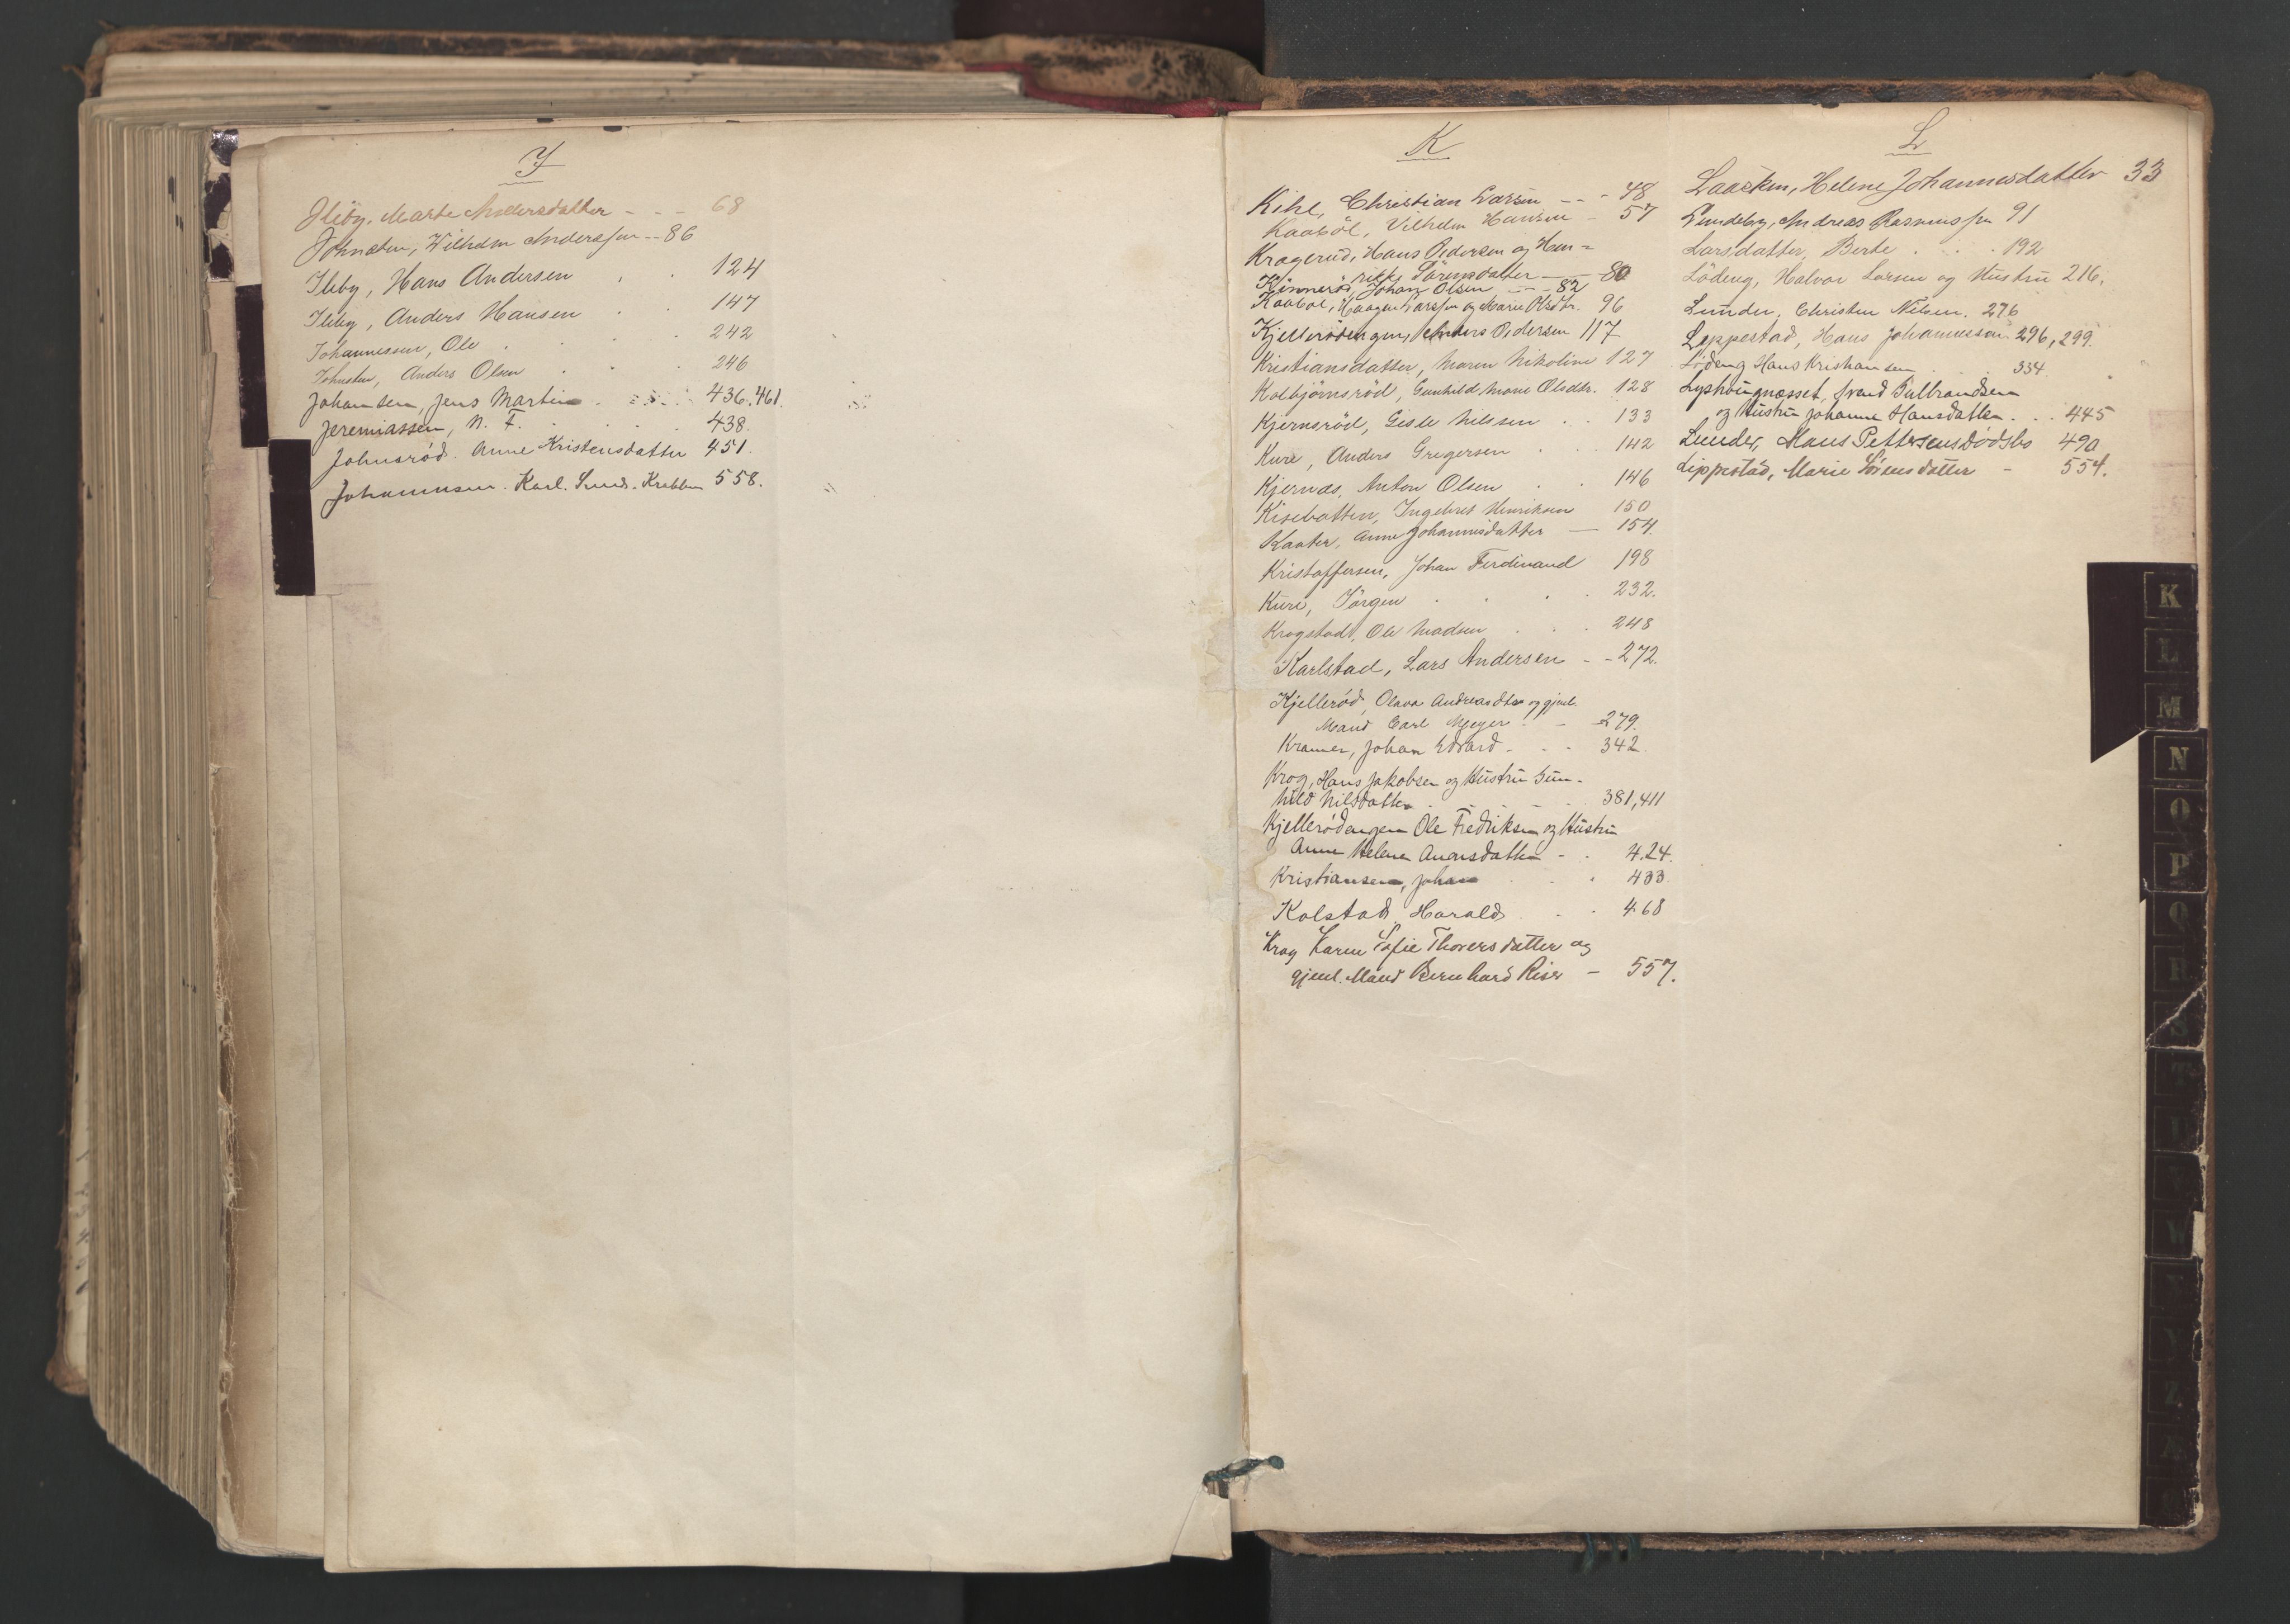 J
Ileby, Marte Andersdatter - - - 68
Johnsen, Wilhelm Anderssen -- 86
Ileby, Hans Andersen . . 124
Ileby, Anders Hansen . . 147
Johannessen, Ole . . . . 242
Johnsen, Anders Olsen . . . 246
Johansen, Jens Martin . . . . 436.461.
Jeremiassen, N. F. . . . . 438.
Johnsrød. Anne Kristensdatter 451.
Johannsen. Karl. Krabben 558.
K
Kihl, Christian Larsen -- - 48
Kaaböl, Vilhelm Hansen - 57
Kragerud, Hans Pedersen og Hen=
rikke Sörensdatter — 80
Kinneröd, Johan Olsen - - - 82
Kaaböl, Haagen Larssen og Marie Olsdtr. 96
Kjellerödengen, Anders Pedersen 117
Kristiansdatter, Maren Nikoline 127
Kolbjörnsröd, Gunhild Marie Olsdtr. 128
Kjernsröd, Gisle Nilssen . . 133
Kure, Anders Gregersen . . 142
Kjernæs, Anton Olsen . . 146
Kisebotten, Ingebret Henriksen 150
Kaater, Anne Johannesdatter — 154.
Kristoffersen, Johan Ferdinand 198
Kure, Jörgen . . . . 232.
Krogstad, Ole Madsen . . . 248
Karlstad, Lars Andersen - - 272.
Kjellerød, Olava Andreasdtr og gjenl.
Mand Carl Meyer . - - 279.
Kramer, Johan Edvard . . - 342.
Krog, Hans Jakobsen og Hustru Gun-
hild Nilsdatter . . . . 381,411
Kjellerødengen Ole Fredriksen og Hustru
Anne Helene Amonsdatter - . 424.
Kristiansen, Johan . . . 433.
Kolstad, Harald . . . 468
Krog Karen Sofie Thoresdatter og
gjenl. Mand Bernhard Riser - 557.
L
Laacken, Helene Johannesdatter 33
Lundeby, Andreas Rasmussen 91
Larsdatter, Berte . . . 192
Lödeng, Halvor Larsen og Hustru 216.
Lunder, Christen Nilsen. 276
Leppestad, Hans Johannessen 296,299.
Lödeng Hans Kristiansen . 334.
Lysthougnæsset, Svend Gulbrandsen
og Hustru Johanne Hansdatter . . . 445
Lunder, Hans Pettersens Dødsbo 490
Lippestad, Marie Sörensdatter - 554.
K
L
M
N
O
P
Q
R
S
T
U
V
W
X
Y
Z
Æ
Ø